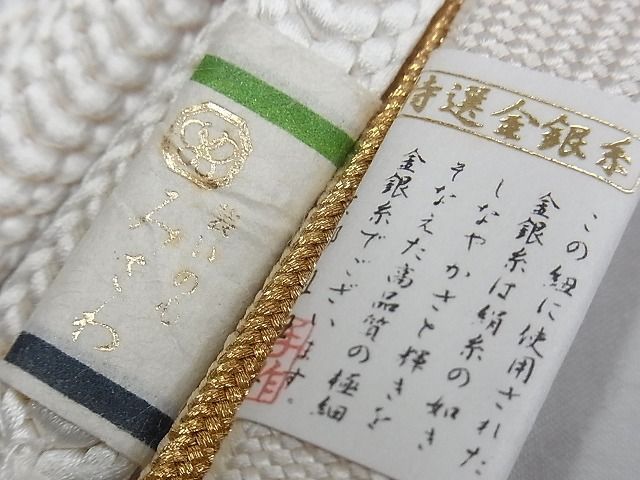 特選金銀糸
この紐に使用された
金銀糸は絹糸の如き
しなやかさと輝きを
そなえた高品質の極細
金銀糸でございます。
装いの
みさわ